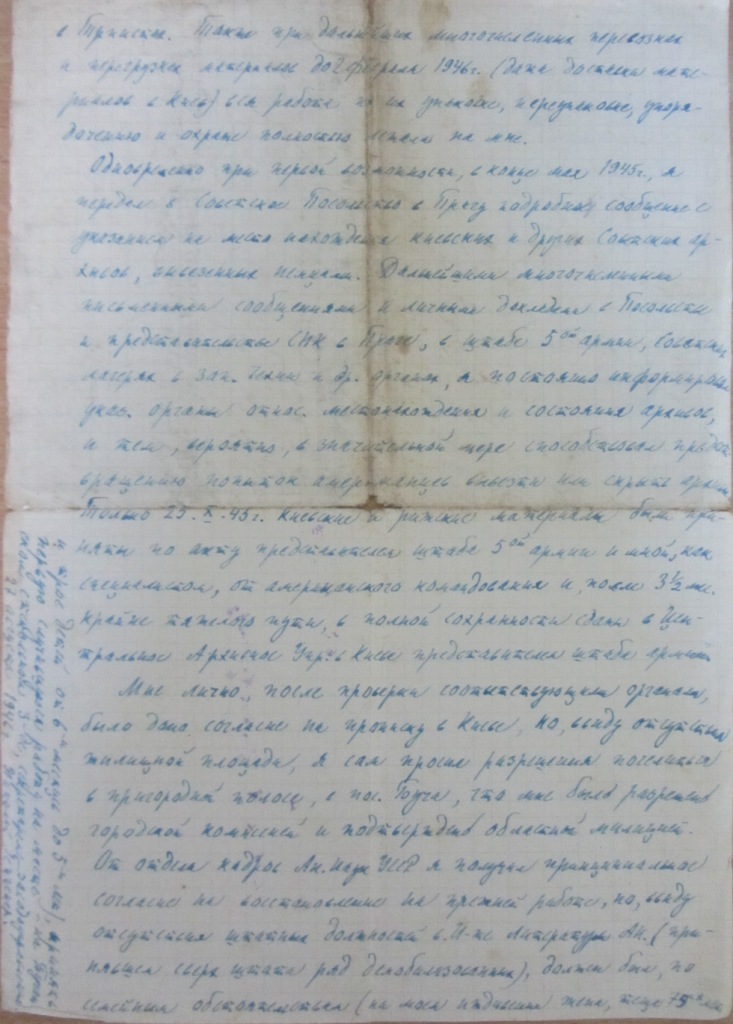 в Тршисты. Также при дальнейших многочисленных перевозках
и перегрузках материалов до 2 февраля 1946 г. (дата доставки мате-
риалов в Киев) вся работа по их упаковке, переупаковке, упоря-
дочению и охране полностью лежала на мне.
Одновременно при первой возможности, в конце мая 1945 г., я
передал в Советское Посольство в Прагу подробное сообщение с
указанием на место нахождения киевских и других Советских ар-
хивов, вывезенных немцами. Дальнейшими многочисленными
письменными сообщениями и личными докладами в Посольстве
и представительстве СНК в Праге, в штабе 5ой армии, Советских
лагерях в Зап. Чехии и др. органах, я постоянно информировал
указ. органы относ. местонахождения и состояния архивов,
и тем, вероятно, в значительной мере способствовал предот-
вращению попыток американцев вывезти или скрыть архивы.
Только 25.X.45 г. киевские и рижские материалы были при-
няты по акту представителем штаба 5ой армии и мной, как
специалистом, от американского командования и, после 3½ мес.
крайне тяжелого пути, в полной сохранности сданы в Цен-
тральное Архивное Упр. в Киеве представителем штаба армии.
Мне лично, после проверки соответствующими органами,
было дано согласие на прописку в Киеве, но, ввиду отсутствия
жилищной площади, я сам просил разрешения поселиться
в пригородной полосе, в пос. Буча, что мне было разрешено
городской комиссией и подтверждено областной милицией.
От отдела кадров Ак. Наук УССР я получил принципиальное
согласие на восстановление на прежней работе, но, ввиду
отсутствия штатных должностей в И-те Литературы Ак. (при-
нявшем сверх штата ряд демобилизованных), должен был, по
семейным обстоятельствам (на моем иждивении жена, теща 75 лет
и трое детей от 6 месяцев до 5 лет), принять
первую случайную работу на месте – на